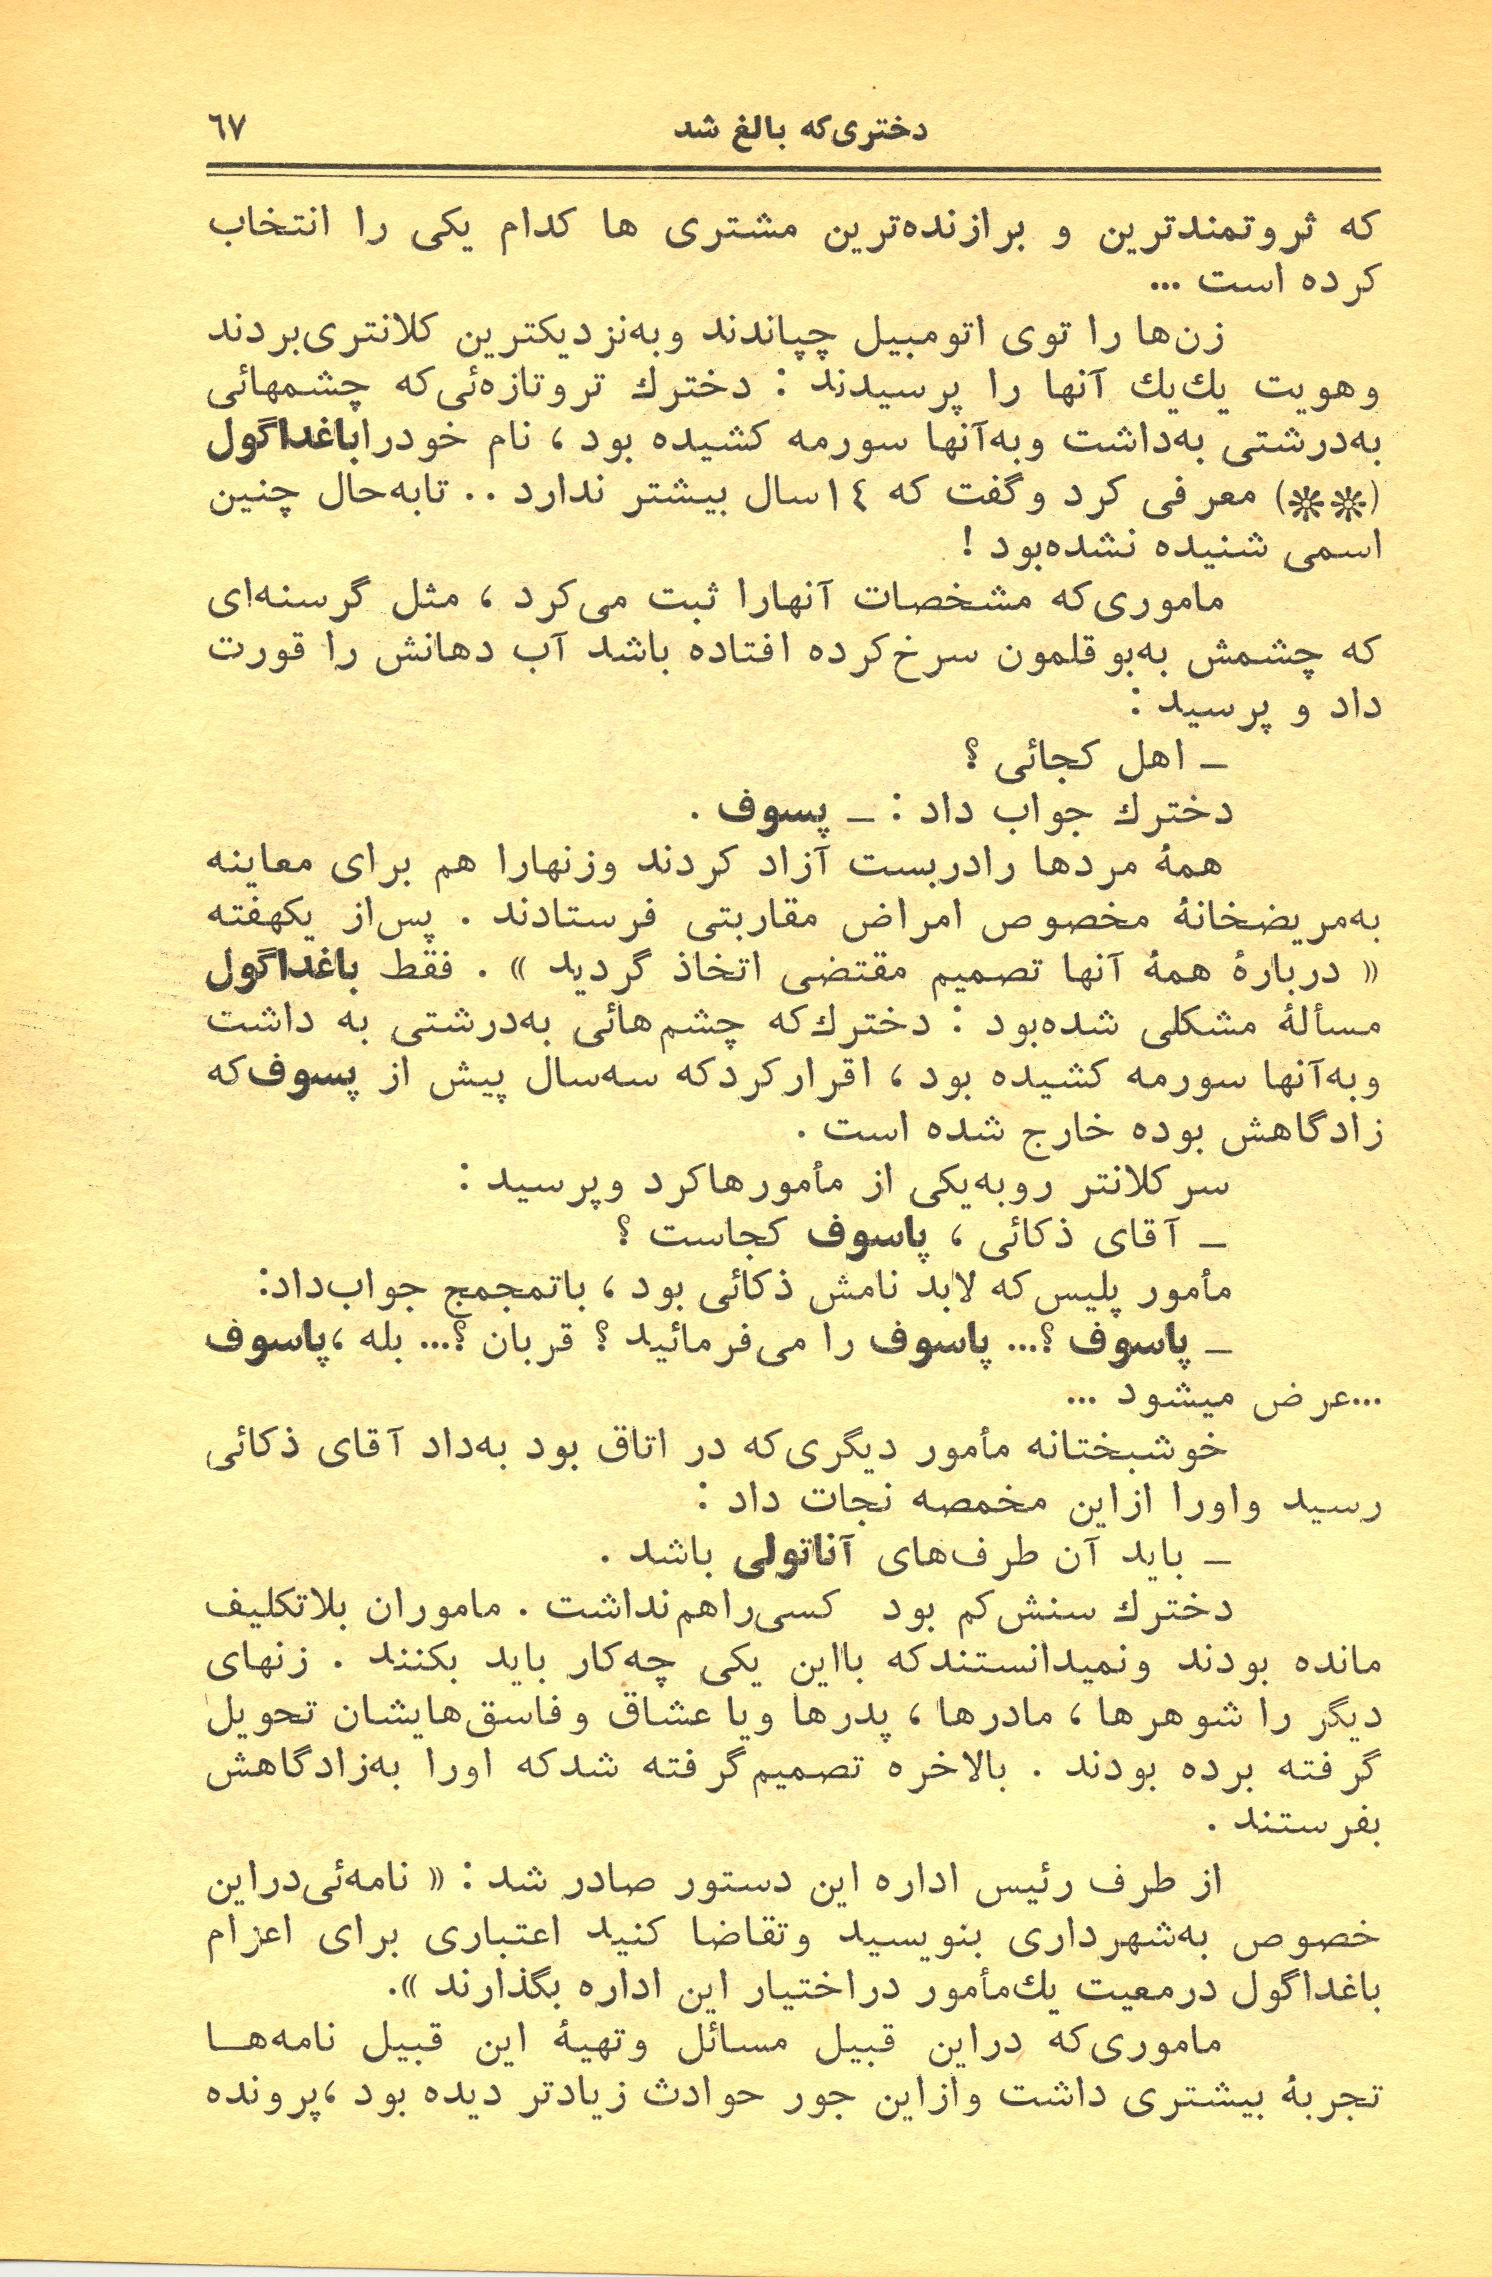 دختری‌که بالغ شد
٦٧
که ثروتمندترین و برازنده‌ترین مشتری ها کدام یکی را انتخاب
کرده است ...
زن‌ها را توی اتومبیل چپاندند وبه‌نزدیکترین کلانتری‌بردند
وهویت یك‌یك آنها را پرسیدند : دخترك تروتازه‌ئی‌که چشمهائی
به‌درشتی به‌داشت وبه‌آنها سورمه کشیده بود ، نام خودراباغداگول
(❊❊) معرفی کرد وگفت که ١٤سال بیشتر ندارد .. تابه‌حال چنین
اسمی شنیده نشده‌بود !
ماموری‌که مشخصات آنهارا ثبت می‌کرد ، مثل گرسنه‌ای
که چشمش به‌بوقلمون سرخ‌کرده افتاده باشد آب دهانش را قورت
داد و پرسید :
ـ اهل کجائی ؟
دخترك جواب داد : ـ پسوف .
همهٔ مردها رادربست آزاد کردند وزنهارا هم برای معاینه
به‌مریضخانهٔ مخصوص امراض مقاربتی فرستادند . پس‌از یکهفته
« دربارهٔ همهٔ آنها تصمیم مقتضی اتخاذ گردید » . فقط باغداگول
مسألهٔ مشکلی شده‌بود : دخترك‌که چشم‌هائی به‌درشتی به داشت
وبه‌آنها سورمه کشیده بود ، اقرارکردکه سه‌سال پیش از پسوف‌که
زادگاهش بوده خارج شده است .
سرکلانتر روبه‌یکی از مأمورهاکرد وپرسید :
ـ آقای ذکائی ، پاسوف کجاست ؟
مأمور پلیس‌که لابد نامش ذکائی بود ، باتمجمج جواب‌داد:
ـ پاسوف ؟... پاسوف را می‌فرمائید ؟ قربان ؟... بله ،پاسوف
...عرض میشود ...
خوشبختانه مأمور دیگری‌که در اتاق بود به‌داد آقای ذکائی
رسید واورا ازاین مخمصه نجات داد :
ـ باید آن طرف‌های آناتولی باشد .
دخترك سنش‌کم بود کسی‌راهم‌نداشت . ماموران بلاتکلیف
مانده بودند ونمیدانستندکه بااین یکی چه‌کار باید بکنند . زنهای
دیگر را شوهرها ، مادرها ، پدرها ویا عشاق وفاسق‌هایشان تحویل
گرفته برده بودند . بالاخره تصمیم‌گرفته شدکه اورا به‌زادگاهش
بفرستند .
از طرف رئیس اداره این دستور صادر شد : « نامه‌ئی‌دراین
خصوص به‌شهرداری بنویسید وتقاضا کنید اعتباری برای اعزام
باغداگول درمعیت یك‌مأمور دراختیار این اداره بگذارند ».
ماموری‌که دراین قبیل مسائل وتهیهٔ این قبیل نامه‌هـا
تجربهٔ بیشتری داشت وازاین جور حوادث زیادتر دیده بود ،پرونده